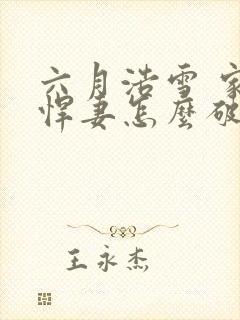 六月浩雪 家
悍妻怎麼破
王永杰